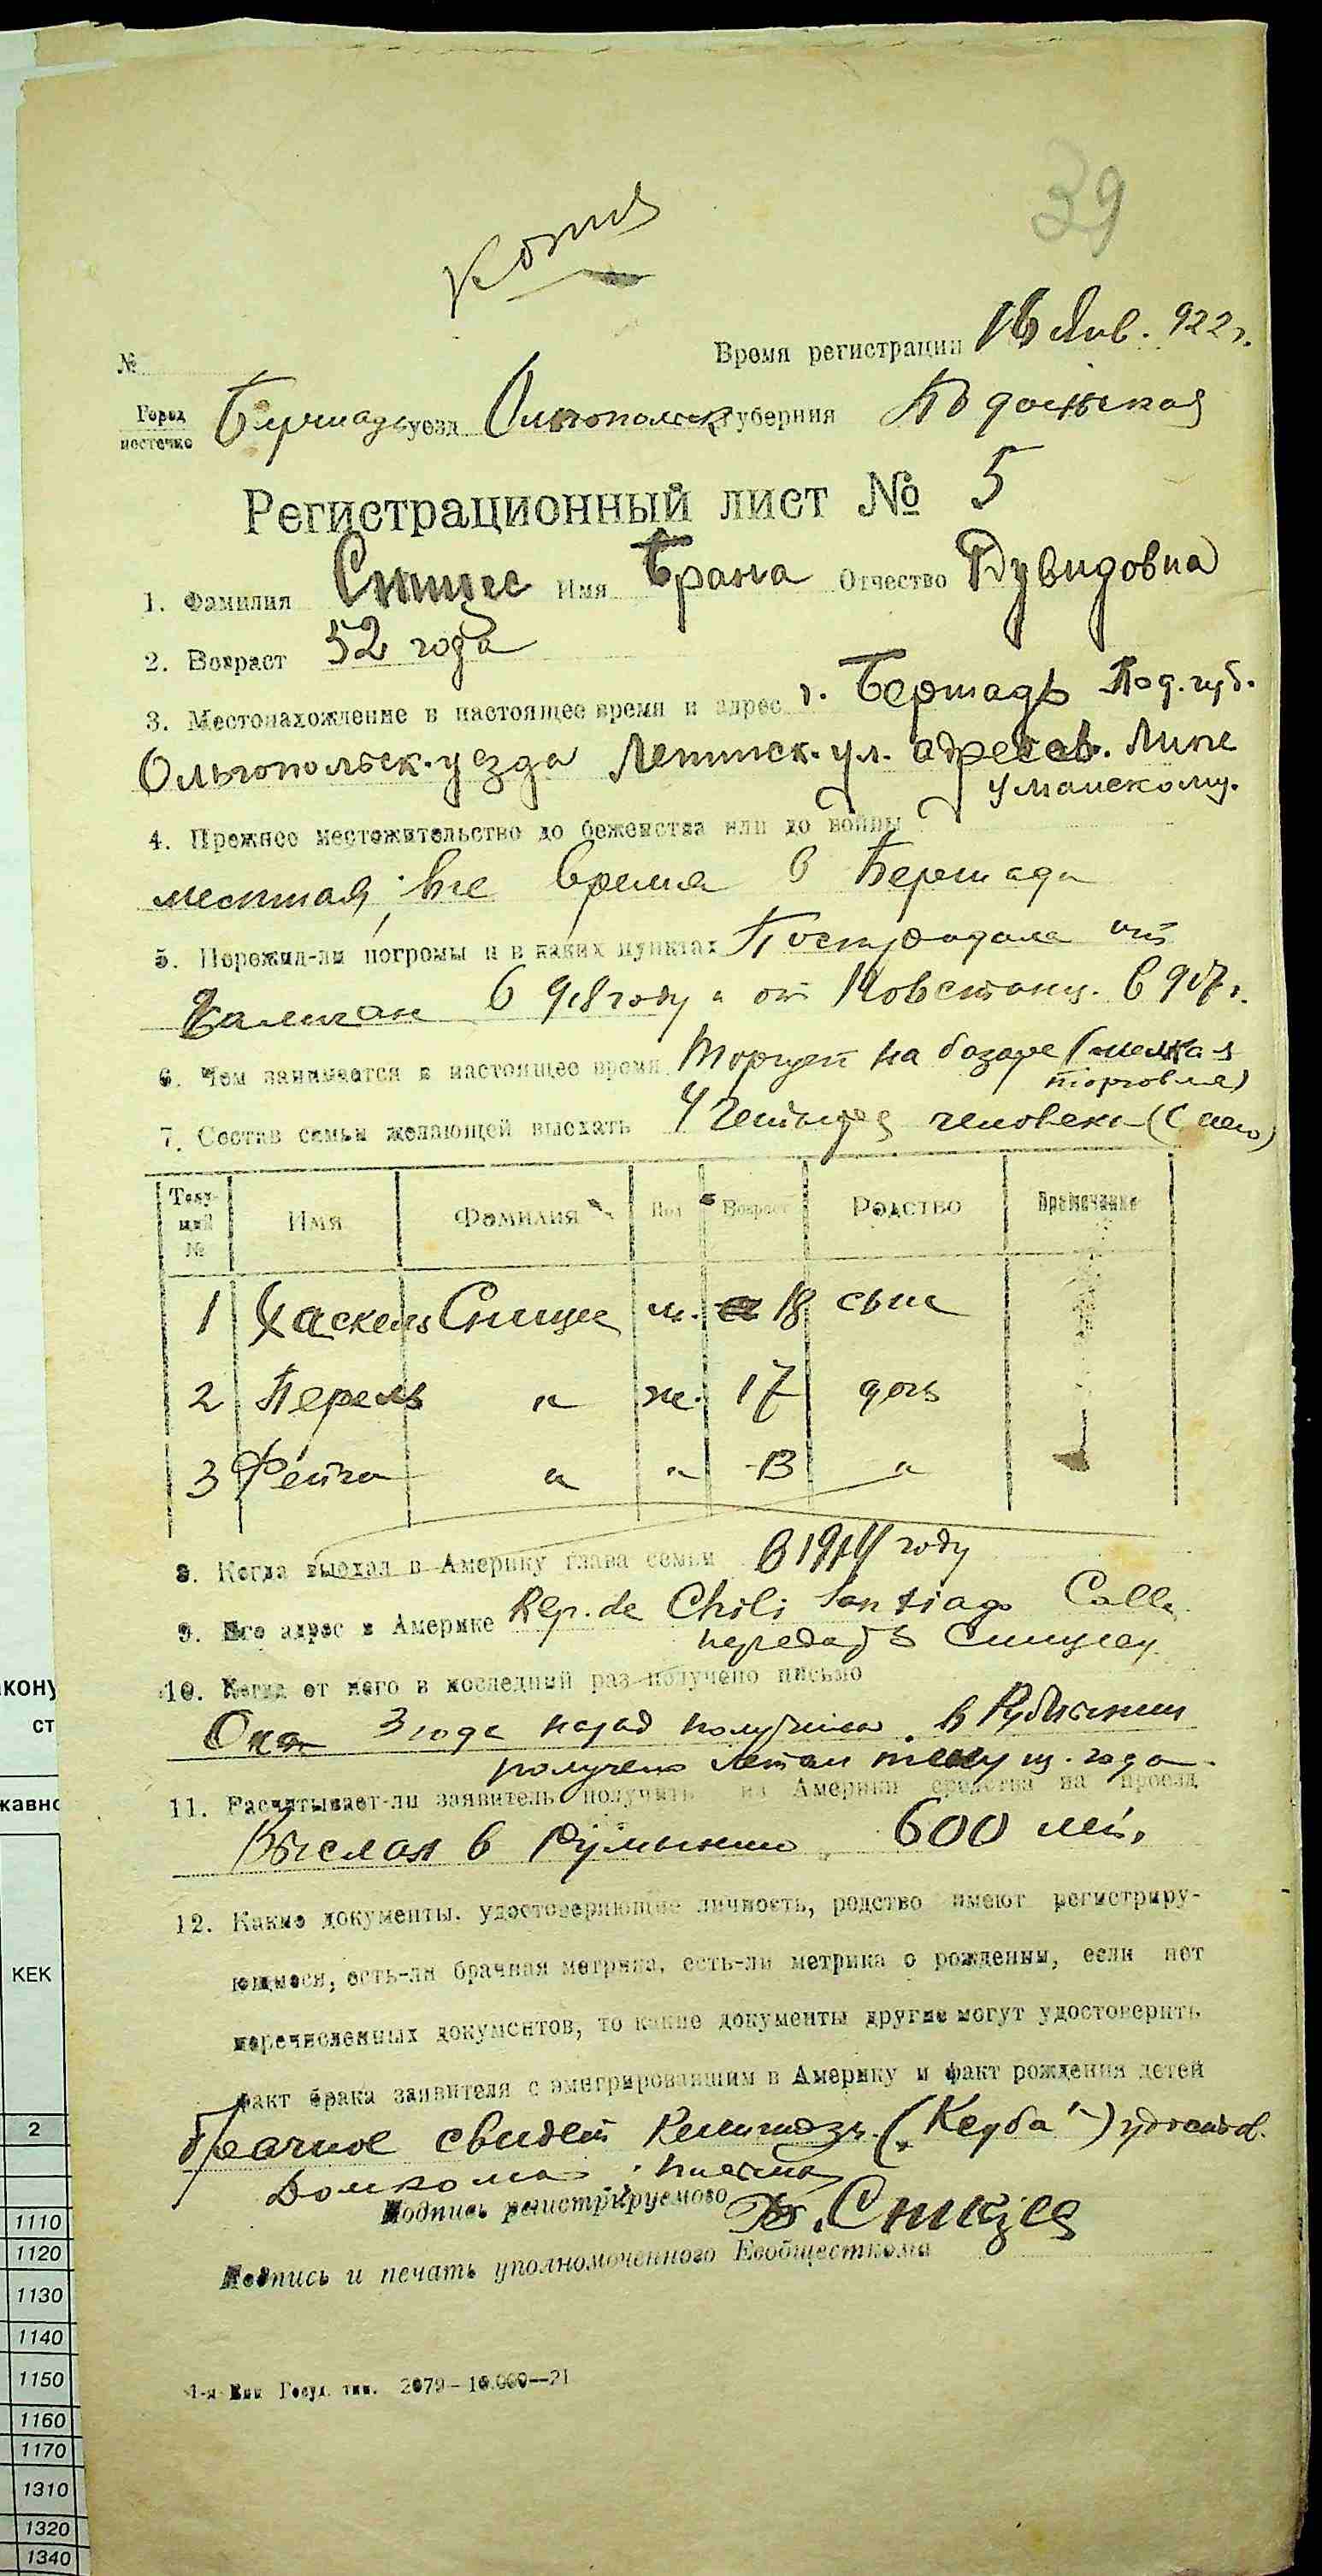 39
Копия
№ Время регистрации 16 Янв. 922 г.
Город
местечко Бершадь уезд Ольгопольск губерния Подольская
Регистрационный лист № 5
1. Фамилия Спицес Имя Брана Отчество Дувидовна
2. Возраст 52 года
3. Местонахождение в настоящее время и адрес г. Бершадь Под. губ.
Ольгопольск. уезда Ленинск. ул. адресов. Липе
Уманскому.
4. Прежнее местожительство до беженства или до войны
местная, все время в Бершади
5. Пережил-ли погромы и в каких пунктах Пострадала от
в 918 году и от Повстанц. в 917 г.
6. Чем занимается в настоящее время Торгует на базаре (мелкая
торговля)
7. Состав семьи желающей выехать 4 Четыре человека (с нею)
Теку-
щий
№ Имя Фамилия Пол Возраст Родство Примечание
1 Хаскель Спицес м. 18 сын
2 Перель " ж. 17 дочь
3 Фейга " " 13 "
8. Когда выехал в Америку глава семьи В 1914 году
9. Его адрес в Америке Rep. de Chili Santiago Calle
передать Спицесу
10. Когда от него в последний раз получено письмо
Она 3 года назад получила. В Румынии
получено летом текущ. года
11. Расчитывает-ли заявитель получить из Америки средства на проезд
Выслал в Румынию 600 лей,
12. Какие документы, удостоверяющие личность, родство имеют регистриру-
ющиеся, есть-ли брачная метрика, есть-ли метрика о рождении, если нет
перечисленных документов, то какие документы другие могут удостоверить
факт брака заявителя с эмигрировавшим в Америку и факт рождения детей
Брачное свидет. ("Кесуба") удостов.
Домкома письма
Подпись регистрируемого Б. Спицес
Подпись и печать уполномоченного Евобщесткома
1-я Гос. тип. 2079–10.000—21
кону
ст
жавно
КЕК
2
1110
1120
1130
1140
1150
1160
1170
1310
1320
1340